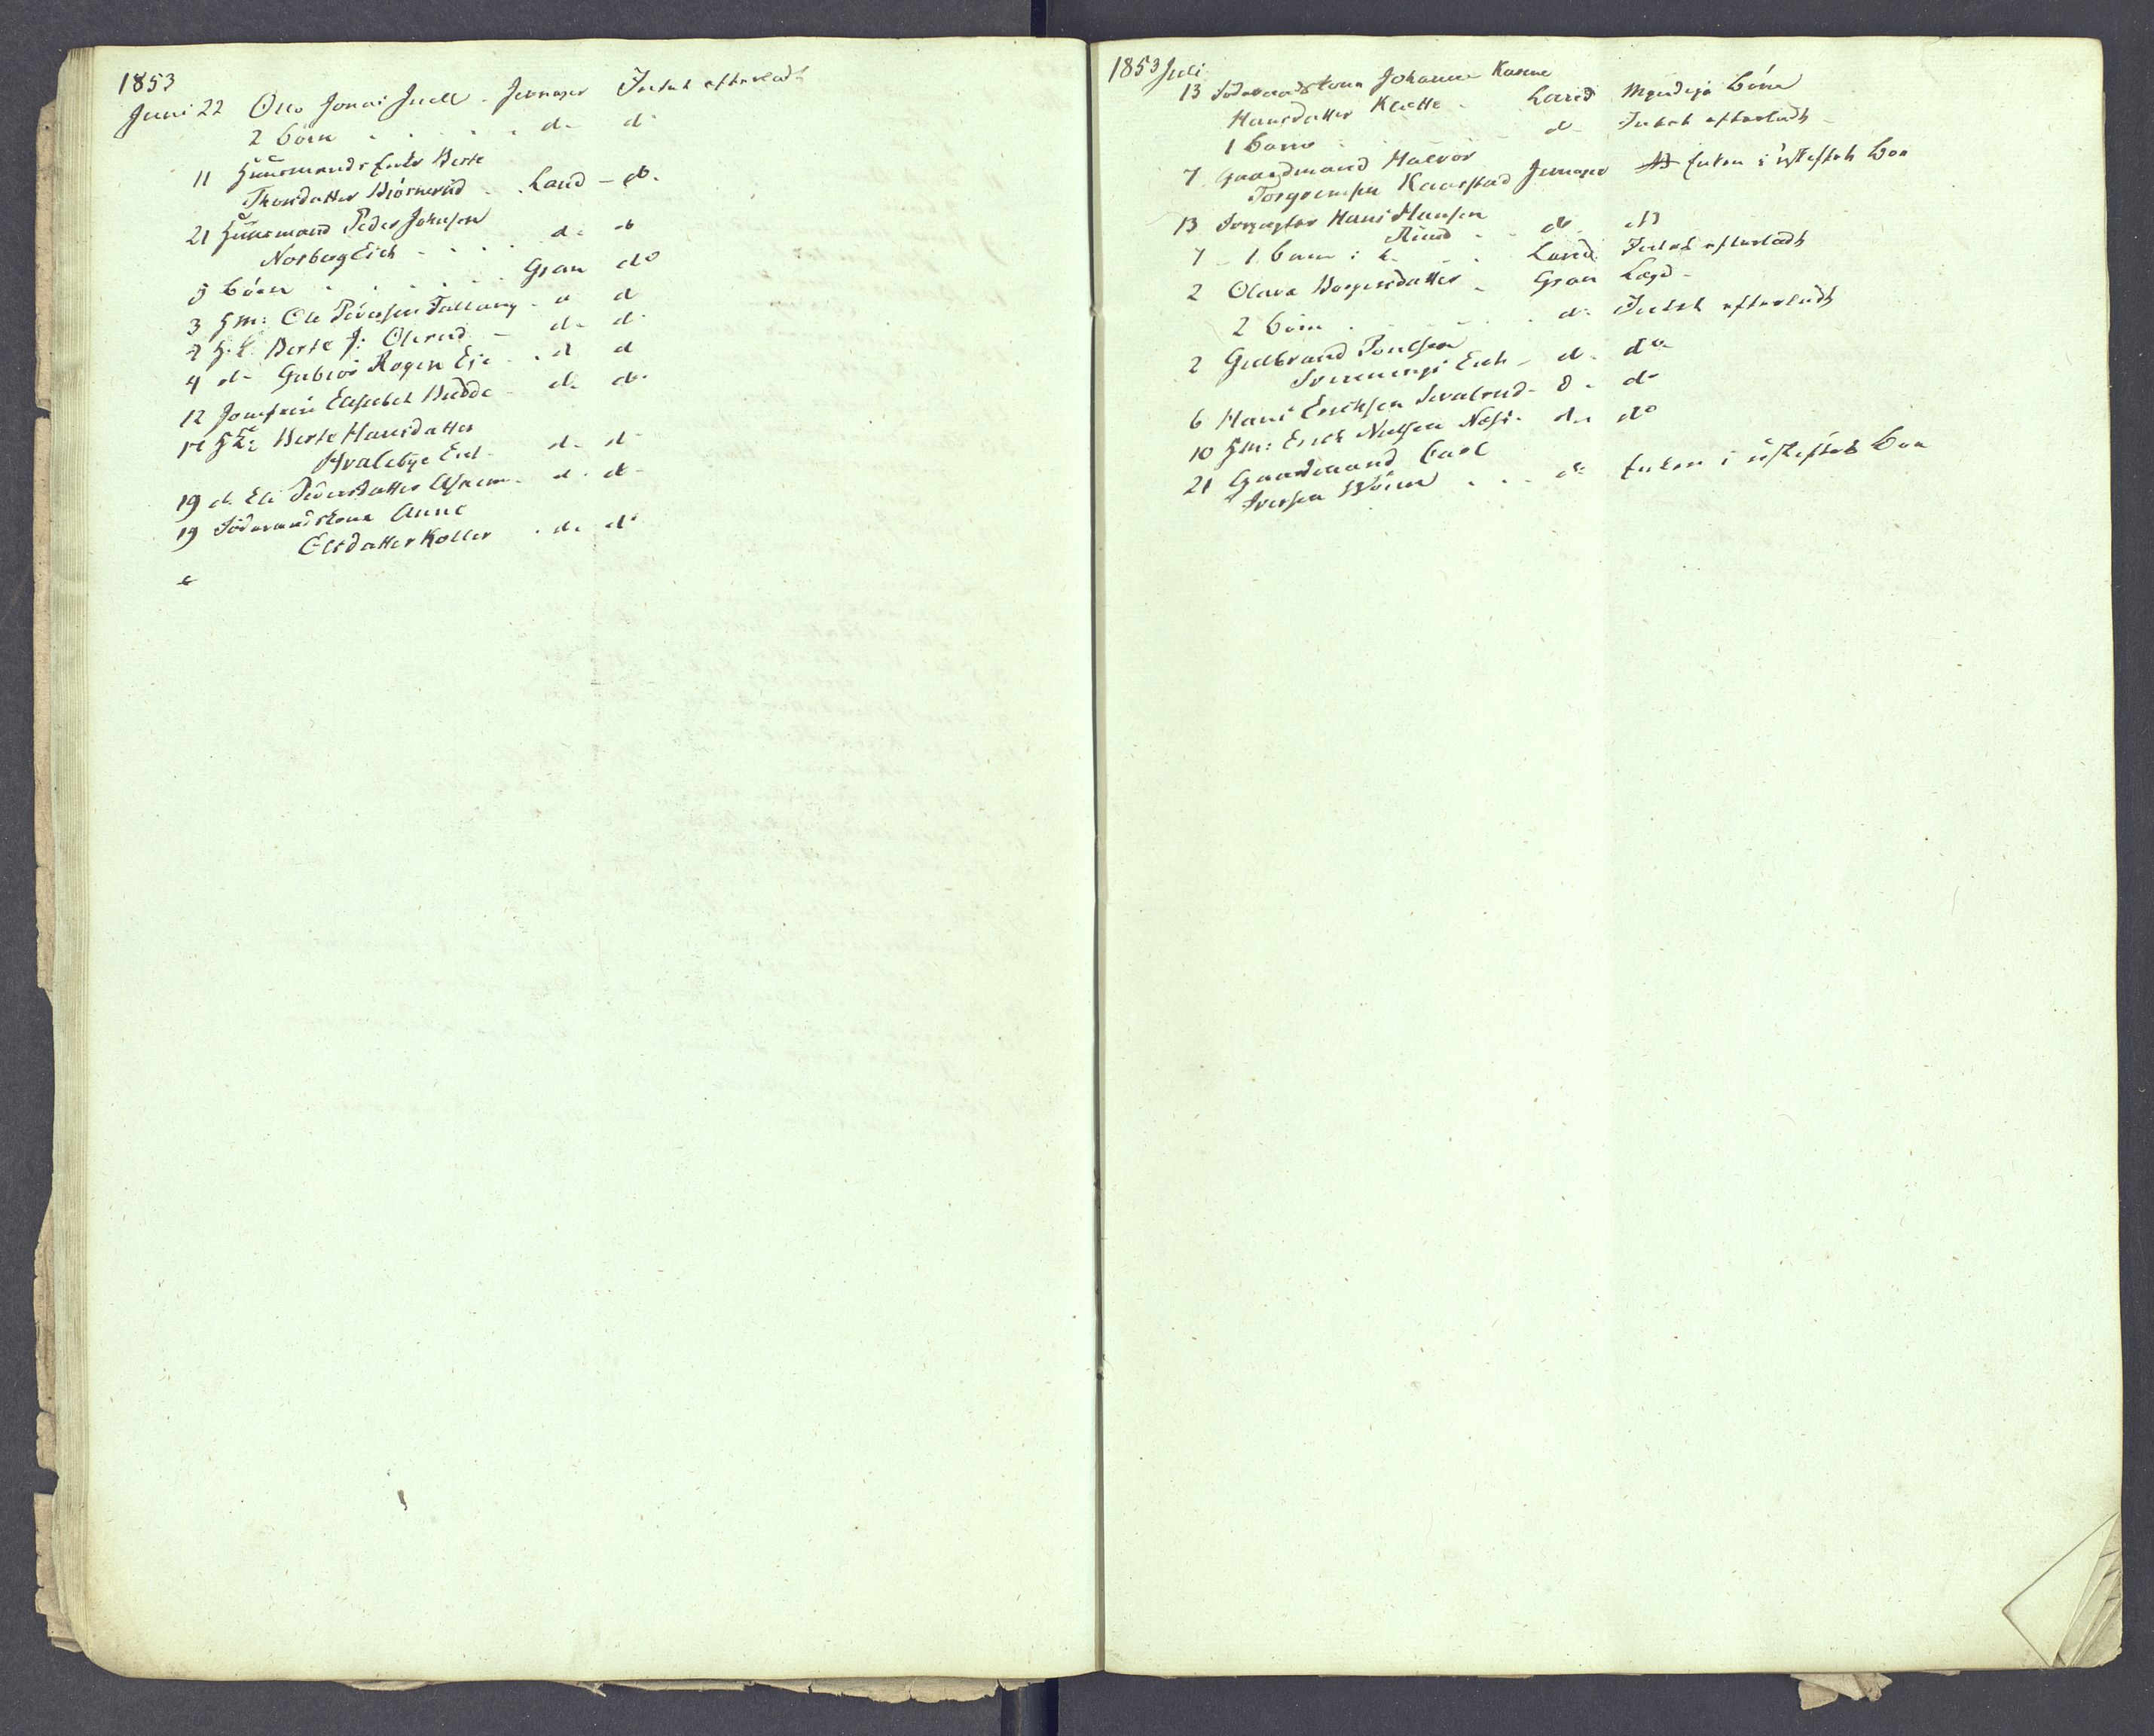 1853
Juni 22 Otto Jonas Juell - Jevnager Intet efterladt
2 börn . . . . . d- d-
11 Huusmands Enke Berte
Thorsdatter Biörnerud - Land - d-
21 Huusmand Peder Johnsen
Norberg Eich . . . . d- d
5 börn . . . . . . Gran do
3 Hm: Ole Iversen Tallang - d d
7 H.E. Berte J: Olerud - d- d-
4 d- Gubiör Rogen Eje - . d d
12 Jomfrue Elisabet Budde - d- d-
14 HE: Berte Hansdatter
Hvalebye Eie - d- d-
19 d. Eli Pedersdatter Askim - d- d-
19 Föderaadskone Anne
Elsdatter Koller . d- do
1853 Juli
13 Föderaadskone Johanne Karine
Hansdatter Klette - Land Myndige börn
1 barn . . . - d- Intet efterladt -
7 Gaardmand Halvor
Torgrimsen Kaarstad Jevnager Enken i uskiftet boe
13 Inderster Hans Hansen
Ruud . . d- do
7 - 1 barn . . Land Intet efterladt
2 Olava Borgersdatter - Gran Lægd -
2 börn . . . . . d- Intet efterladt
2 Gulbrand Poulsen
Eich - d- do-
6 Hans Erichsen - d- d-
10 Hm: Erich Nielsen Næss - d- do
21 Gaardmand Carl
Iversen . . . d- Enken i uskiftet boe